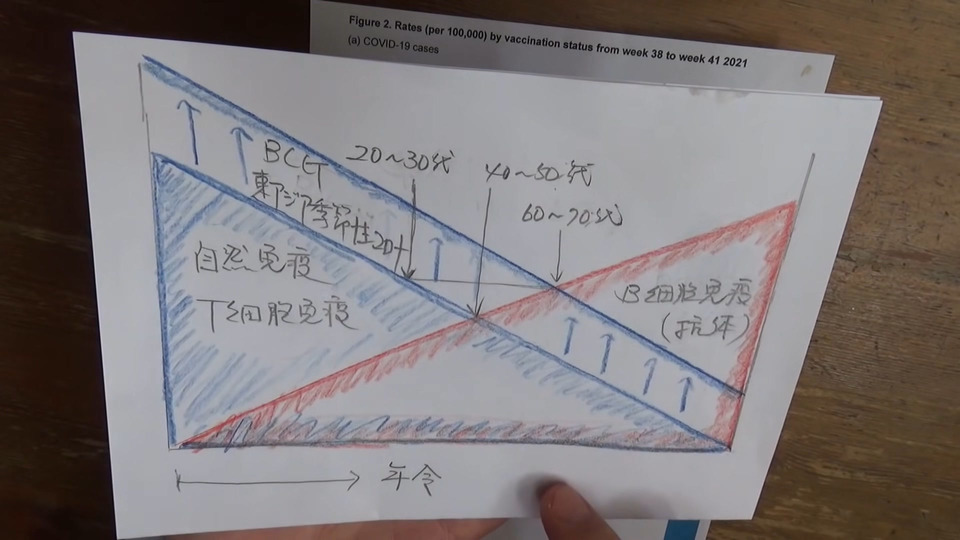 Figure 2. Rates (per 100,000) by vaccination status from week 38 to week 41 2021
(a) COVID-19 cases
BCG
東アジア季節性コロナ
20~30代
40~50代
60~70代
自然免疫
T細胞免疫
B細胞免疫
(抗体)
年令